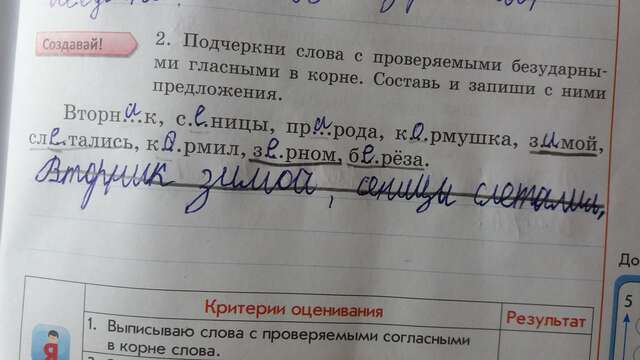 Создавай!
2. Подчеркни слова с проверяемыми безударны-
ми гласными в корне. Составь и запиши с ними
предложения.
Вторн а к, с е ницы, пр а рода, к о рмушка, з и мой,
сл е тались, к о рмил, з е рном, б е рёза.
Вторник зимой, сеницы слетались,
Критерии оценивания
Результат
1. Выписываю слова с проверяемыми согласными
в корне слова.
Я
До
5